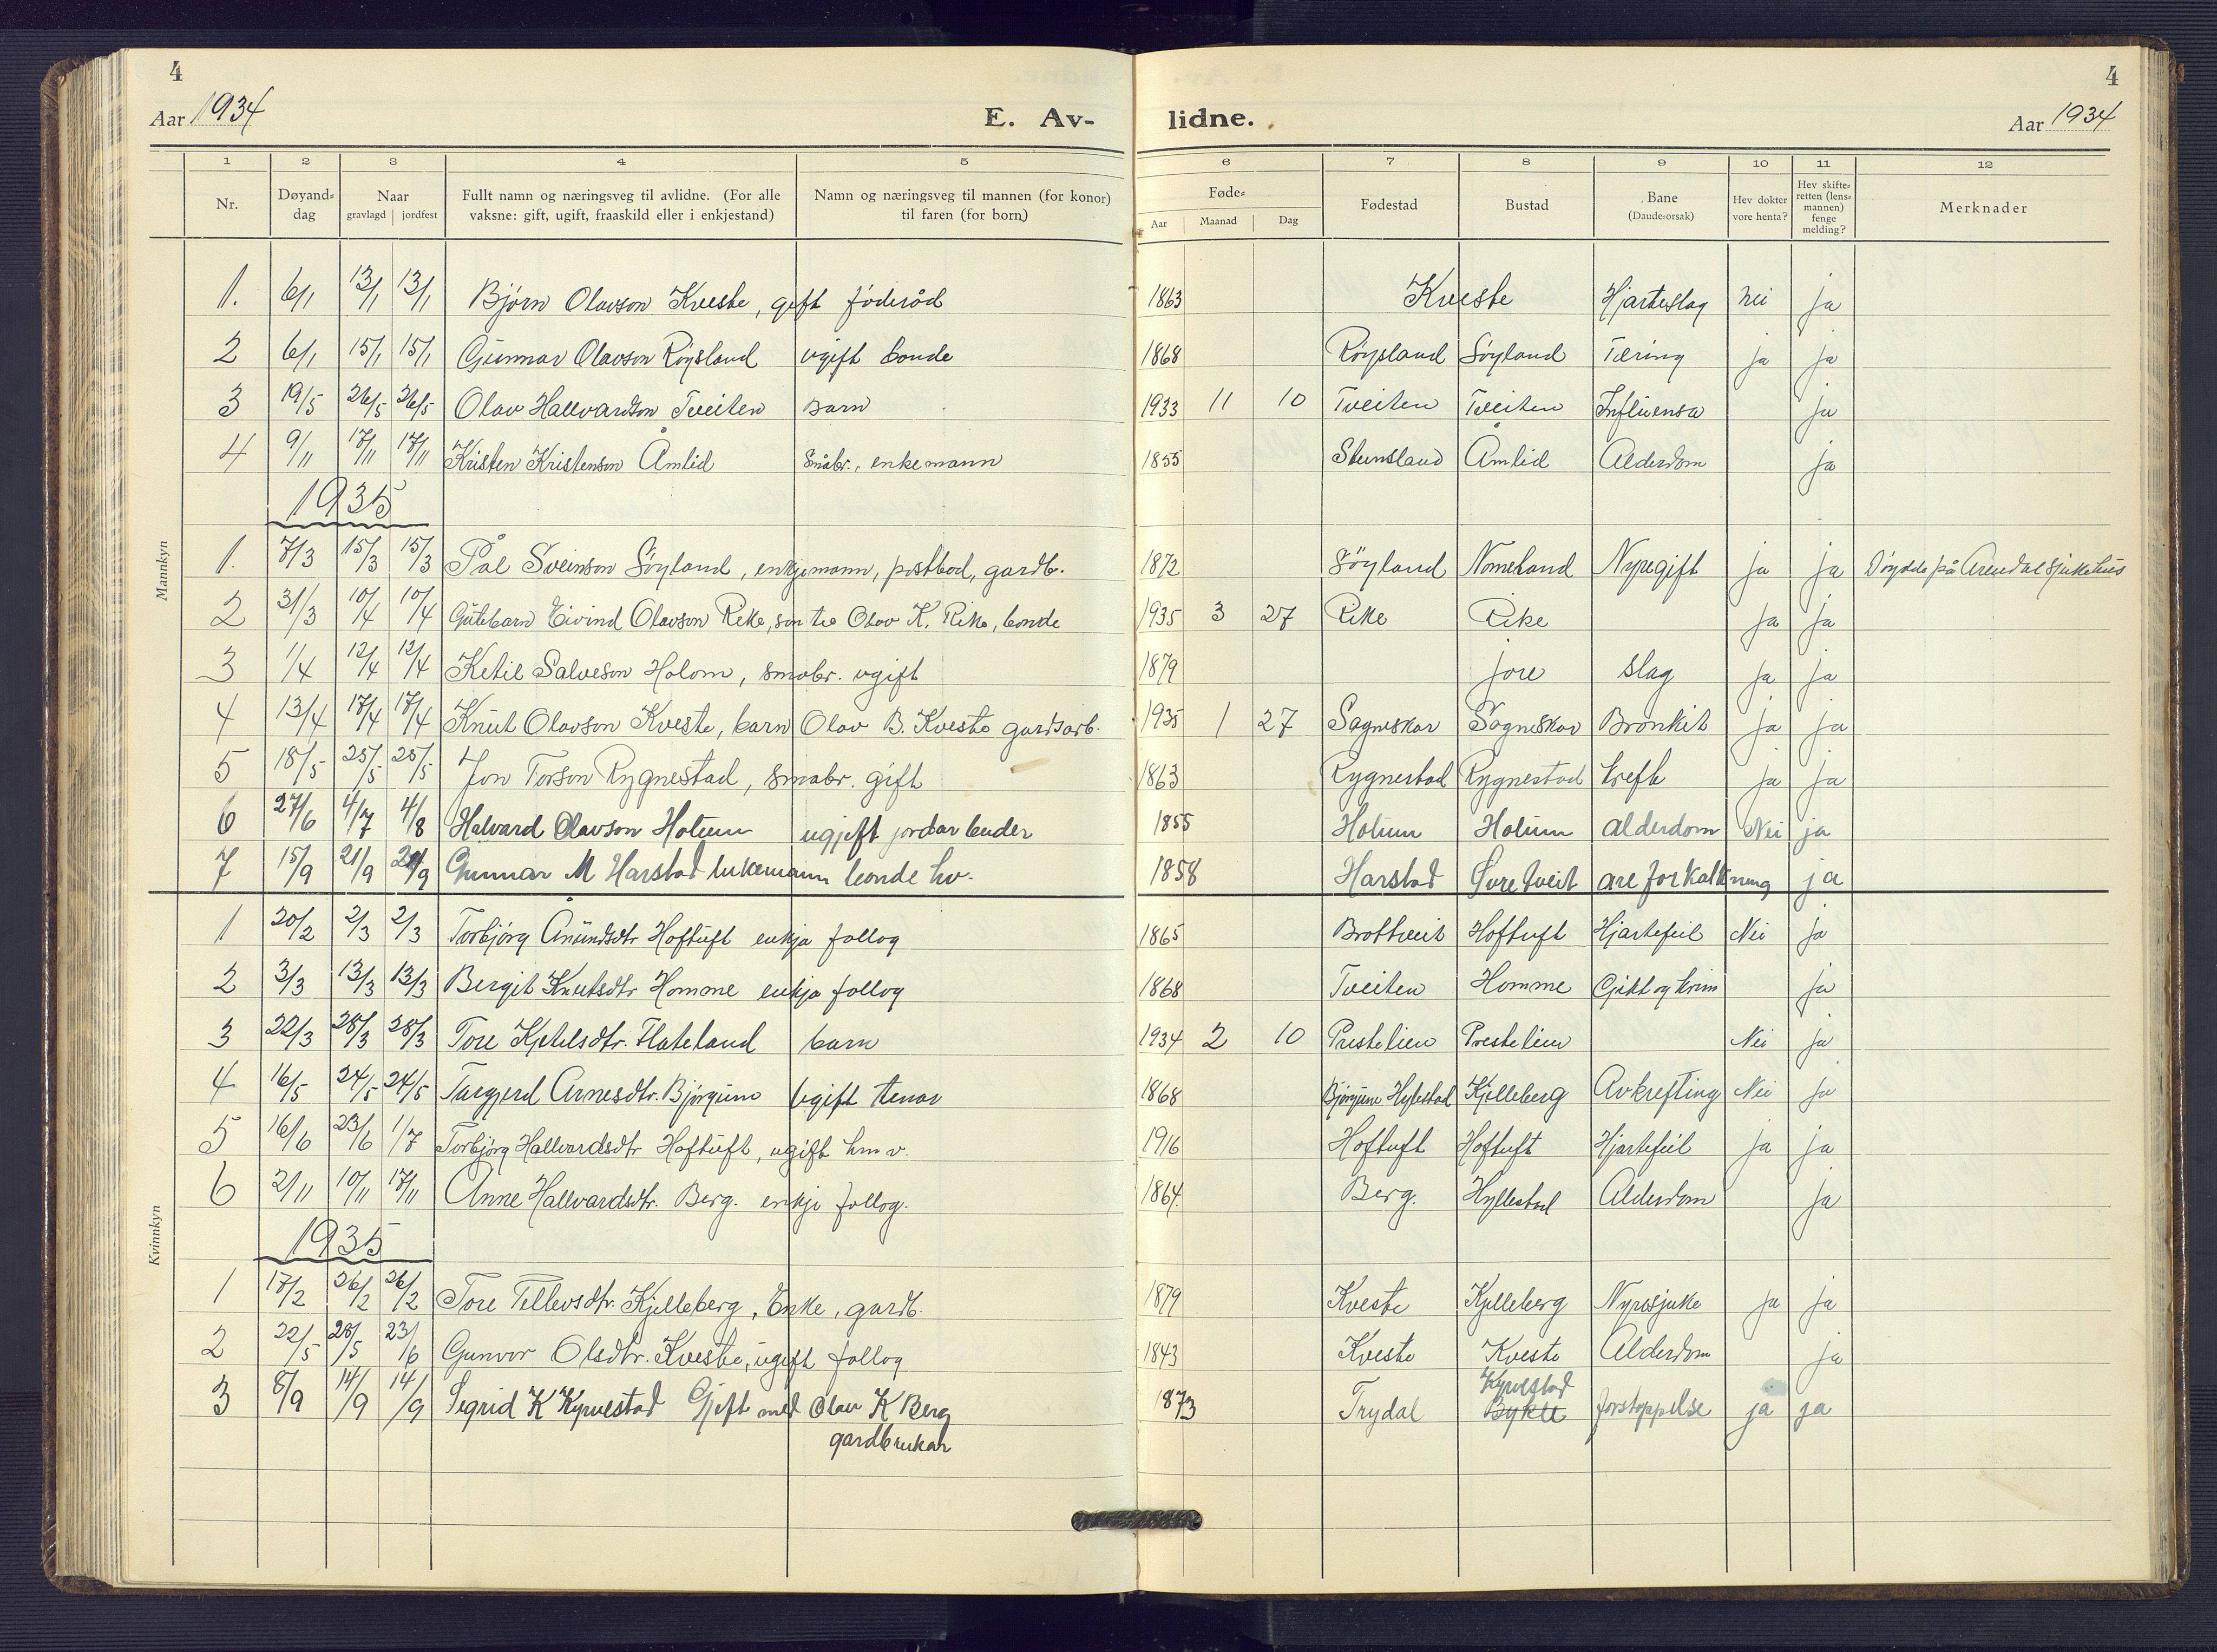 4
4
Aar 1934
E. Av-
lidne.
Aar 1934
1 2 3 4 5 6 7 8 9 10 11 12
Nr. Døyand-dag Naar gravlagd jordfest Fullt namn og næringsveg til avlidne. (For alle vaksne: gift, ugift, fraaskild eller i enkjestand) Namn og næringsveg til mannen (for konor) til faren (for born) Føde- Aar Maanad Dag Fødestad Bustad Bane (Daudeorsak) Hev dokter vore henta? Hev skifte-retten (lens-mannen) fenge melding? Merknader
Mannkyn
1. 6/1 13/1 13/1 Bjørn Olavson Kveste, gift föderåd 1863 Kveste Hjarteslag nei ja
2 6/1 15/1 15/1 Gunnar Olavson Röysland ugift bonde 1868 Röysland Söyland Tæring ja ja
3 19/5 26/5 26/5 Olav Hallvardson Tveiten Barn 1933 11 10 Tveiten Tveiten Influensa ja
4 9/11 17/11 17/11 Kristen Kristenson Åmlid Småbr., enkemann 1855 Stensland Åmlid Alderdom ja
1935
1. 7/3 15/3 15/3 Pål Sveinson Söyland, enkjemann, postbod, gardb. 1872 Söyland Nomeland Nyregift ja ja Döydde på Arendal Sjukehus
2 31/3 10/4 10/4 Gutebarn Eivind Olavson Rike, son til Olav K. Rike, bonde 1935 3 27 Rike Rike ja ja
3 1/4 12/4 12/4 Ketil Salveson Holom, småbr. ugift 1879 jore slag ja ja
4 13/4 17/4 17/4 Knut Olavson Kveste, barn Olav B. Kveste gardsarb. 1935 1 27 Sagneskar Sagneskar Bronkit ja ja
5 18/5 25/5 25/5 Jon Torson Rygnestad, småbr. gift 1863 Rygnestad Rygnestad kreft ja ja
6 27/6 4/7 4/8 Halvard Olavson Holum ugjift jordarbeider 1855 Holum Holum alderdom Nei ja
7 15/9 21/9 21/9 Gunnar M Harstad enkemann bonde 1858 Harstad Svretveit areforkalkning ja
Kvinnkyn
1 20/2 2/3 2/3 Torbjørg Ånundsdtr Hoftuft enkja follog 1865 Brottveit Hoftuft Hjartefeil Nei ja
2 3/3 13/3 13/3 Bergit Knutsdtr Homme enkja follog 1868 Tveiten Homme Gikt og krim ja
3 22/3 28/3 28/3 Tore Kjetilsdtr. Flateland barn 1934 2 10 Prestelien Prestelien Nei ja
4 16/5 24/5 24/5 Targjerd Arnesdtr. Bjørgum ugift tenar 1868 Bjørgum Hylestad Kjelleberg Avkrefting Nei ja
5 16/6 23/6 1/7 Torbjörg Hallvardsdtr Hoftuft, ugift hm v. 1916 Hoftuft Hoftuft Hjartefeil ja ja
6 2/11 10/11 17/11 Anne Hallvardsdtr. Berg. enkje follog. 1864. Berg. Hyllestad Alderdom ja
1935
1 17/2 26/2 26/2 Tore Tellevsdtr. Kjelleberg, Enke, gardb. 1879 Kveste Kjelleberg Nyresjuke ja ja
2 22/5 28/5 23/6 Gunvor Olsdtr. Kveste, ugift follog 1843 Kveste Kveste Alderdom ja
3 8/9 14/9 14/9 Sigrid K Kyrvestad Gjeft med Olav K Berg 1873 Trydal Bykle Kyrvestad forstoppelse ja ja
gardbrukar